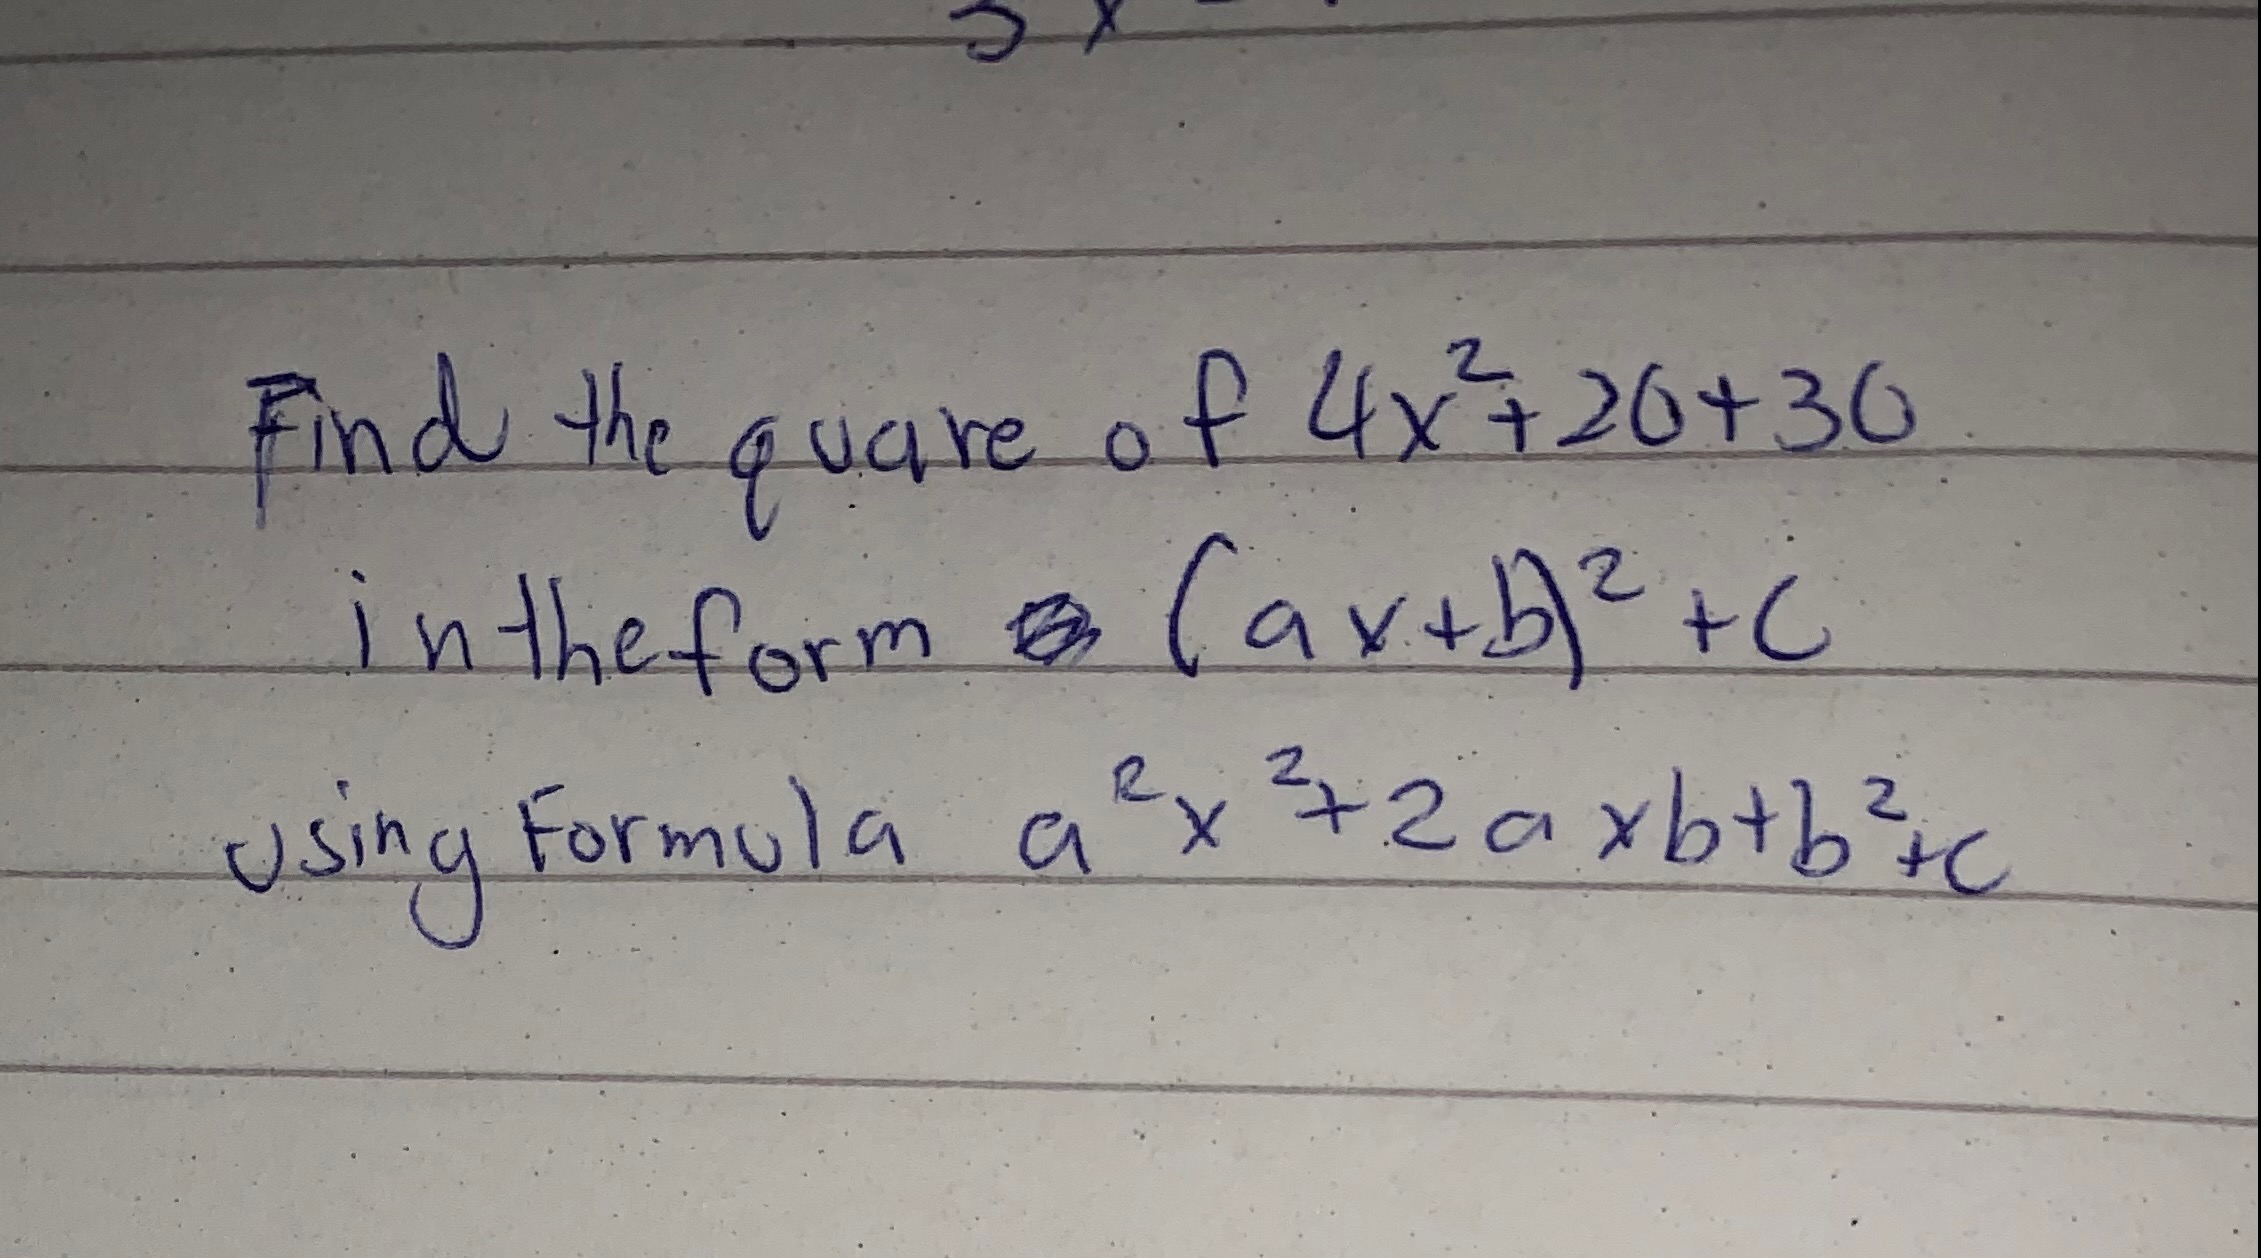 Find the quare of 4x²+20+30
in the form (ax+b)²+c
using Formula a²x²+2axb+b²+c